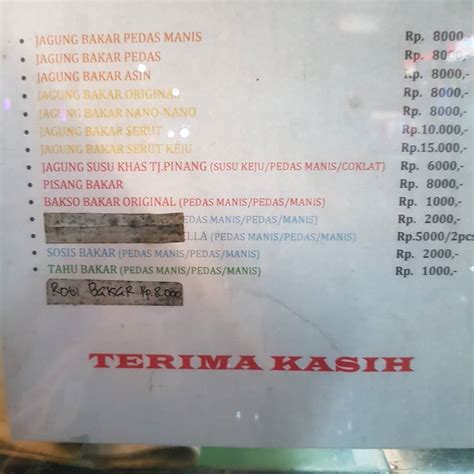 • JAGUNG BAKAR PEDAS MANIS Rp. 8000
• JAGUNG BAKAR PEDAS Rp. 8000
• JAGUNG BAKAR ASIN Rp. 8000,-
• JAGUNG BAKAR ORIGINAL Rp. 8000,-
• JAGUNG BAKAR NANO-NANO Rp. 8000,-
• JAGUNG BAKAR SERUT Rp.10.000,-
• JAGUNG BAKAR SERUT KEJU Rp.15.000,-
• JAGUNG SUSU KHAS TJ.PINANG (SUSU KEJU/PEDAS MANIS/COKLAT) Rp. 6000,-
• PISANG BAKAR Rp. 8000,-
• BAKSO BAKAR ORIGINAL (PEDAS MANIS/PEDAS/MANIS) Rp. 1000,-
• PEDAS MANIS/PEDAS/MANIS) Rp. 2000,-
• ELLA (PEDAS MANIS/PEDAS/MANIS) Rp.5000/2pcs
• SOSIS BAKAR (PEDAS MANIS/PEDAS/MANIS) Rp. 2000,-
• TAHU BAKAR (PEDAS MANIS/PEDAS/MANIS) Rp. 1000,-
ROTI BAKAR Rp.8.000
TERIMA KASIH